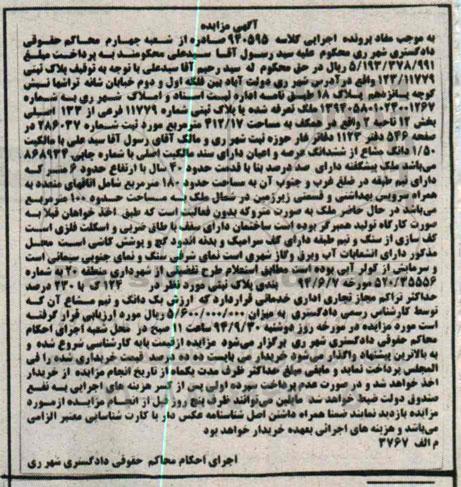 آگهی مزایده
به موجب مفاد پرونده اجرایی کلاسه ۹۴۰۵۹۵ صادره از شعبه چهارم محاکم حقوقی
دادگستری شهر ری محکوم علیه سید رسول آقا سیدعلی محکومند به پرداخت مبلغ
۵/۱۹۳/۳۷۸/۹۹۱ ریال در حق محکوم له سید رحیم آقا سیدعلی با توجه به توقیف پلاک ثبتی
۱۲۳/۱۱۷۷۹ واقع در آدرس شهر ری دولت آباد بین فلکه اول و دوم خیابان شانه تراشها نبش
کوچه پانزدهم پلاک ۱۸ طبق نامه اداره ثبت اسناد و املاک شهر ری به شماره
۱۳۹۴۰۵۸۰۱۰۲۳۰۰۱۲۶۷ ملک تعرفه شده با پلاک ثبتی شماره ۱۱۷۷۹ فرعی از ۱۲۳ اصلی
بخش ۱۲ ناحیه ۲ واقع در همکف به مساحت ۴۱۲/۱۷ مترمربع مورد ثبت شماره ۲۸۶۰۳۷ در
صفحه ۵۴۶ دفتر ۱۱۲۳ دفاتر فاز حوزه ثبت شهر ری و مالک آقای رسول آقا سید علی با مالکیت
۱/۵۰ دانگ مشاع از ششدانگ عرصه و اعیان دارای سند مالکیت اصلی با شماره چاپی ۸۶۸۹۳۴
می‌باشد ملک پیشگفته دارای صد درصد بنا با قدمت حدود ۳۰ سال با ارتفاع حدود ۶ متر که
دارای نیم طبقه در ضلع غرب و جنوب آن به مساحت حدود ۱۸۰ مترمربع شامل اتاقهای متعدد به
همراه سرویس بهداشتی و قسمتی زیرزمین در شمال ملک به مساحت حدود ۱۰۰ مترمربع
می‌باشد در حال حاضر ملک به صورت متروکه بدون فعالیت است که طبق اخذ خواهان قبلا به
صورت کارگاه تولید همبرگر بوده است ساختمان دارای سقف با طاق ضربی و اسکلت فلزی است
کف سازی از سنگ و نیم طبقه دارای کف سرامیک و بدنه اندود گچ و پوشش کاشی است محل
مذکور دارای انشعابات آب وبرق وگاز شهری است نمای شرقی سنگ و نمای جنوبی سیمانی است
و سرمایش از کولر آبی بوده است مطابق استعلام طرح تفصیلی از شهرداری منطقه ۲۰ به شماره
۵۲۰/۳۵۵۵۶ مورخه ۹۴/۶/۷ بندی پلاک ثبتی مورد نظر در ۶۱۲۴ با ۲۳۰ درصد
حداکثر تراکم مجاز تجاری اداری خدماتی قراردارد که ارزش یک دانگ و نیم مشاع آن که
توسط کارشناس رسمی دادگستری به میزان ۵/۶۰۰/۰۰۰/۰۰۰ ریال مورد ارزیابی قرار گرفته
است مورد مزایده در مورخه روز دوشنبه ۹۴/۹/۳۰ ساعت ۱۱ صبح در محل شعبه اجرای احکام
محاکم حقوقی دادگستری شهر ری برگزار می‌شود مزایده ازقیمت پایه کارشناسی شروع شده و
به بالاترین پیشنهاد واگذار می‌شود خریدار می بایست ده درصد قیمت خریداری شده را فی
المجلس پرداخت نماید و مابقی مبلغ حداکثر ظرف مدت یکماه از تاریخ انجام مزایده از خریدار
اخذ خواهد شد و در صورت عدم پرداخت سپرده اولی پس از کسر هزینه های اجرایی به نفع
صندوق دولت ضبط خواهد شد مایلین می‌توانند ظرف پنج روز قبل از انجام مزایده از مورد
مزایده بازدید نمایند ضمنا همراه داشتن اصل شناسنامه عکس دار یا کارت شناسایی معتبر الزامی
می‌باشد و هزینه های اجرائی بعهده خریدار خواهد بود
م الف ۳۷۶۷
اجرای احکام محاکم حقوقی دادگستری شهر ری